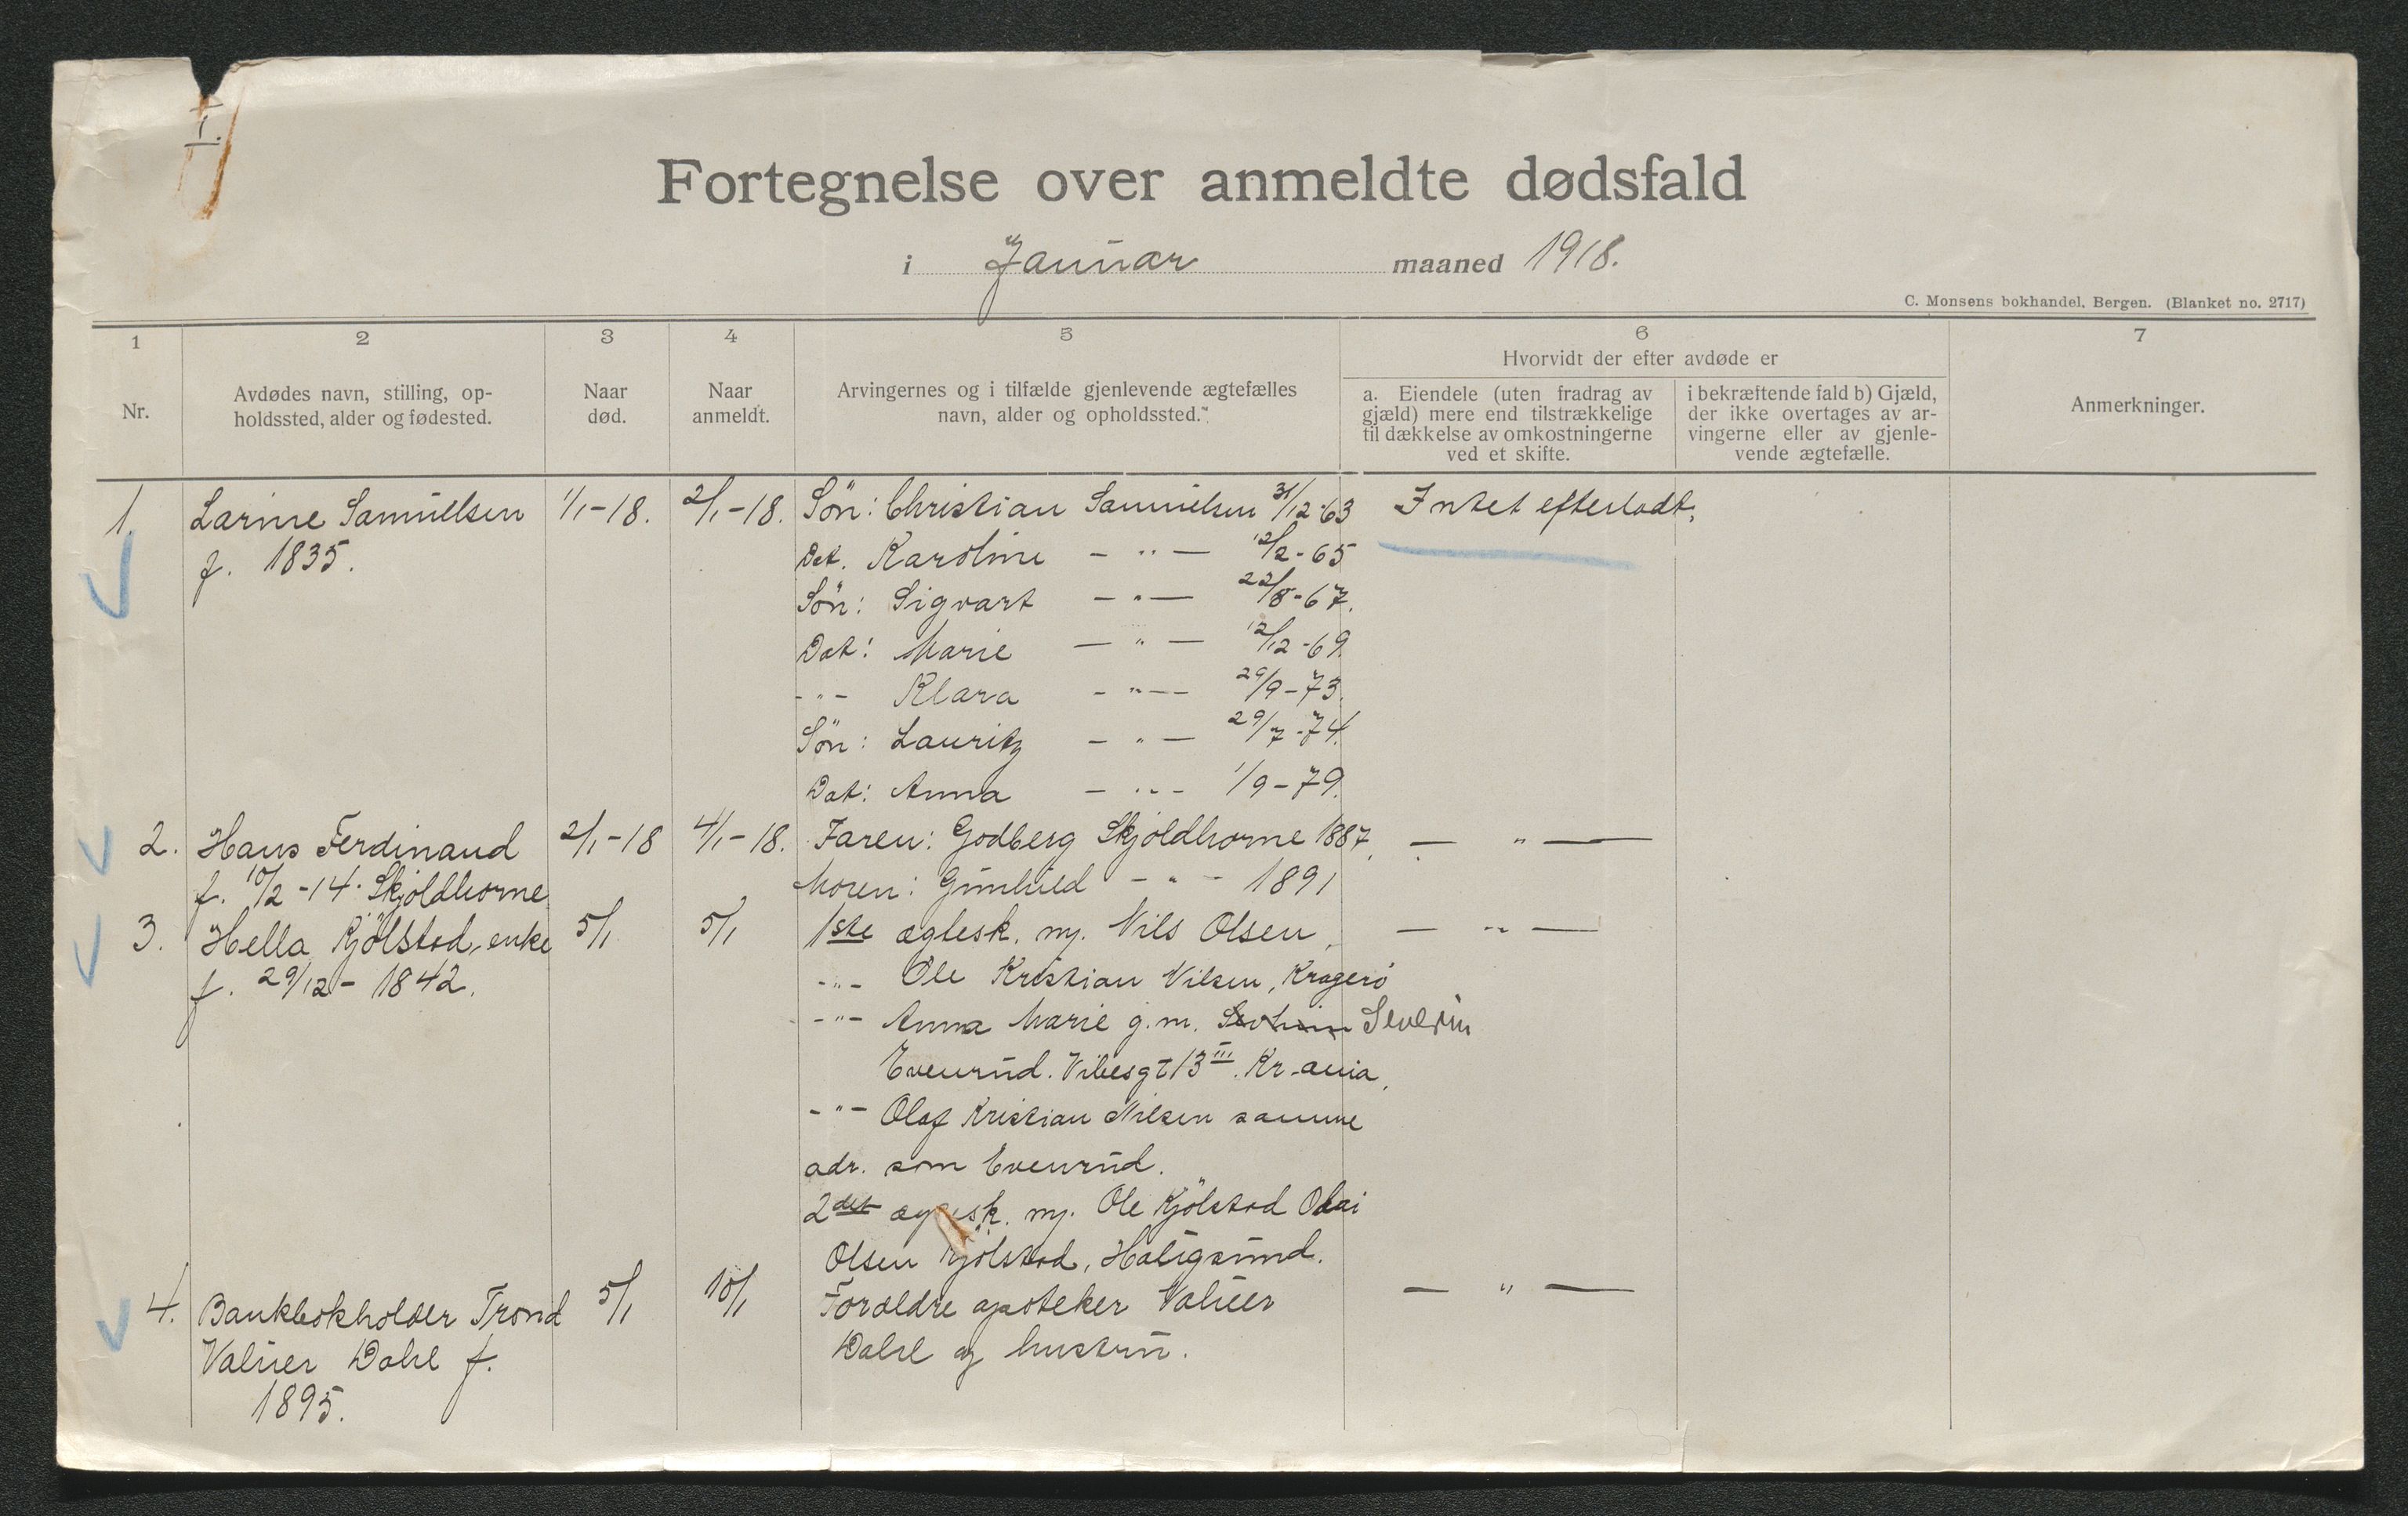 1.
Fortegnelse over anmeldte dødsfald
i Januar maaned 1918.
C. Monsens bokhandel, Bergen. (Blanket no. 2717)
1 2 3 4 5 6 7
Nr.
Avdødes navn, stilling, op-
holdssted, alder og fødested.
Naar
død.
Naar
anmeldt.
Arvingernes og i tilfælde gjenlevende ægtefælles
navn, alder og opholdssted.
Hvorvidt der efter avdøde er
a. Eiendele (uten fradrag av
gjæld) mere end tilstrækkelige
til dækkelse av omkostningerne
ved et skifte.
i bekræftende fald b) Gjæld,
der ikke overtages av ar-
vingerne eller av gjenle-
vende ægtefælle.
Anmerkninger.
1. Larine Samuelsen 1/1-18. 2/1-18. Søn: Christian Samuelsen 31/12-63 Intet efterladt.
f. 1835. Dat. Karoline - " - 12/2-65
Søn: Sigvart - " - 22/8-67.
Dat: Marie - " - 12/12-69.
- " - Klara - " - 29/9-73.
Søn: Lauritz - " - 29/7-74.
Dat: Anna - " - 1/9-79.
2. Hans Ferdinand 2/1-18 4/1-18. Faren: Godberg Skjoldhorne 1887. - " -
f. 10/2-14. Skjoldhorne Moren: Gunhild - " - 1891
3. Hella Kjølstad, enke 5/1 5/1 1ste ægtesk. m. Nils Olsen, - " -
f. 29/12-1842. - " - Ole Kristian Nilsen, Kragerø
- " - Anna Marie g.m. Severin
Evenrud. Vibesgt 13 III. Kr.ania.
- " - Olaf Kristian Nilsen samme
adr. som Evenrud.
2det m. Ole Kjølstad Olai
Olsen Kjølstad,
4. Bankbokholder Trond 5/1 10/1 Forældre apoteker Valuer - " -
Valuer Dahl f. Dahl og hustru.
1895.